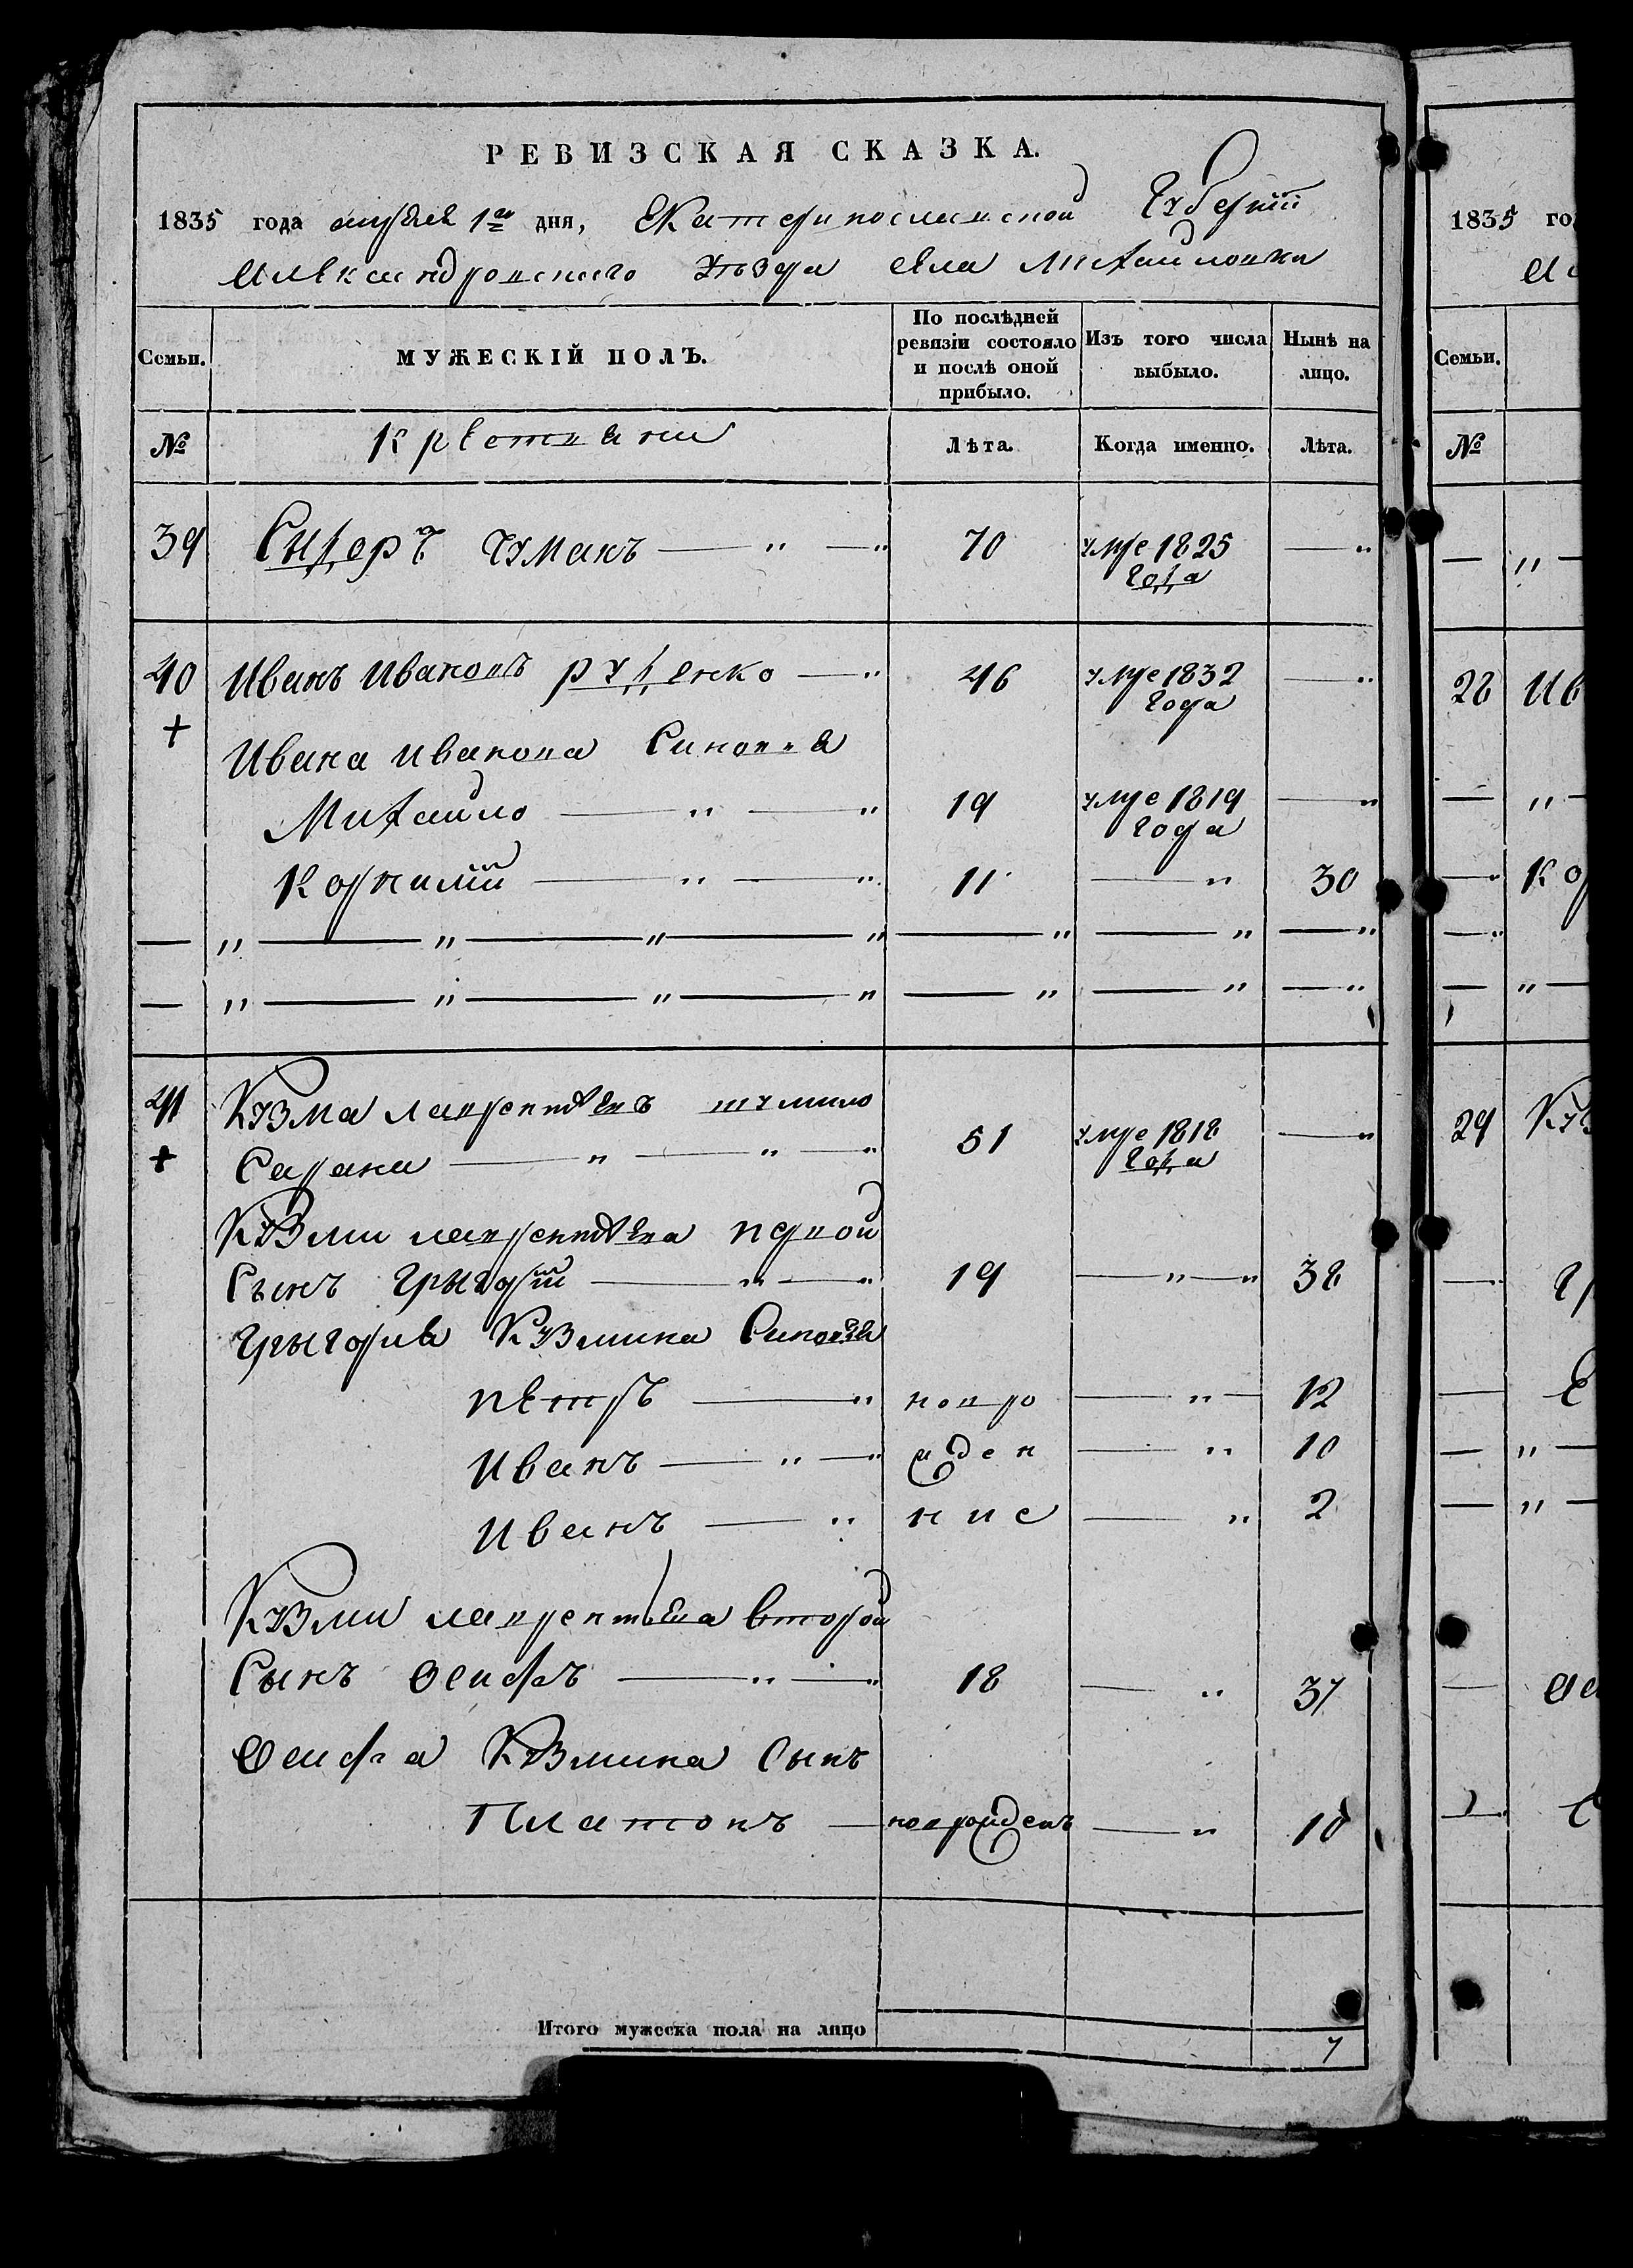 РЕВИЗСКАЯ СКАЗКА.
1835 года апреля 1го дня, Екатеринославской Губернии
Александровского уезда села Михайловки
Семьи.
МУЖЕСКІЙ ПОЛЪ.
По послѣдней ревизіи состояло и послѣ оной прибыло.
Изъ того числа выбыло.
Нынѣ на лицо.
№
Крестьяни
Лѣта.
Когда именно.
Лѣта.
39 Сидеръ Чумакъ — " — " 70 умре 1825 года — "
40 Иванъ Ивановъ Руденко — " 46 умре 1832 года — "
+
Ивана Иванова Синовя
Михайло — " — " 19 умре 1819 года — "
Корнилій — " — " 11 — " 30
— " — " — " — " — " — " — "
— " — " — " — " — " — " — "
41 Кузма Лаврентьевъ
+ — " — " — " 51 умре 1818 года — "
Кузми Лаврентьева первой
Сынъ Грыгорій — " — " 19 — " — " 38
Грыгория Кузмина Синовя
Петръ — " новро — " — 12
Иванъ — " — " жден — " 10
Иванъ — " ние — " 2
Кузми Лаврентьева второй
Сынъ Осифъ — " — " 18 — " 37
Осифа Кузмина Сынъ
Платонъ — новрожденъ — " 10
Итого мужеска пола на лицо 7
1835 го
Семьи.
№
— " —
28 Ив
— " —
— " Кор
— "
— " —
29 Куз
— " Гр
—
— " —
— " —
—
—